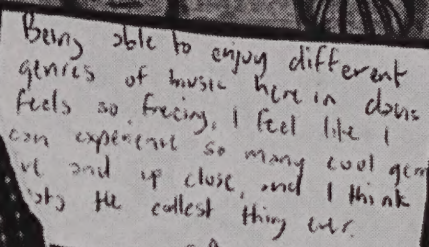 Being able to enjoy different
genres of music here in davis
feels so freeing, I feel like I
can experience so many cool gen
ve and up close, and I think
the coolest thing ever.